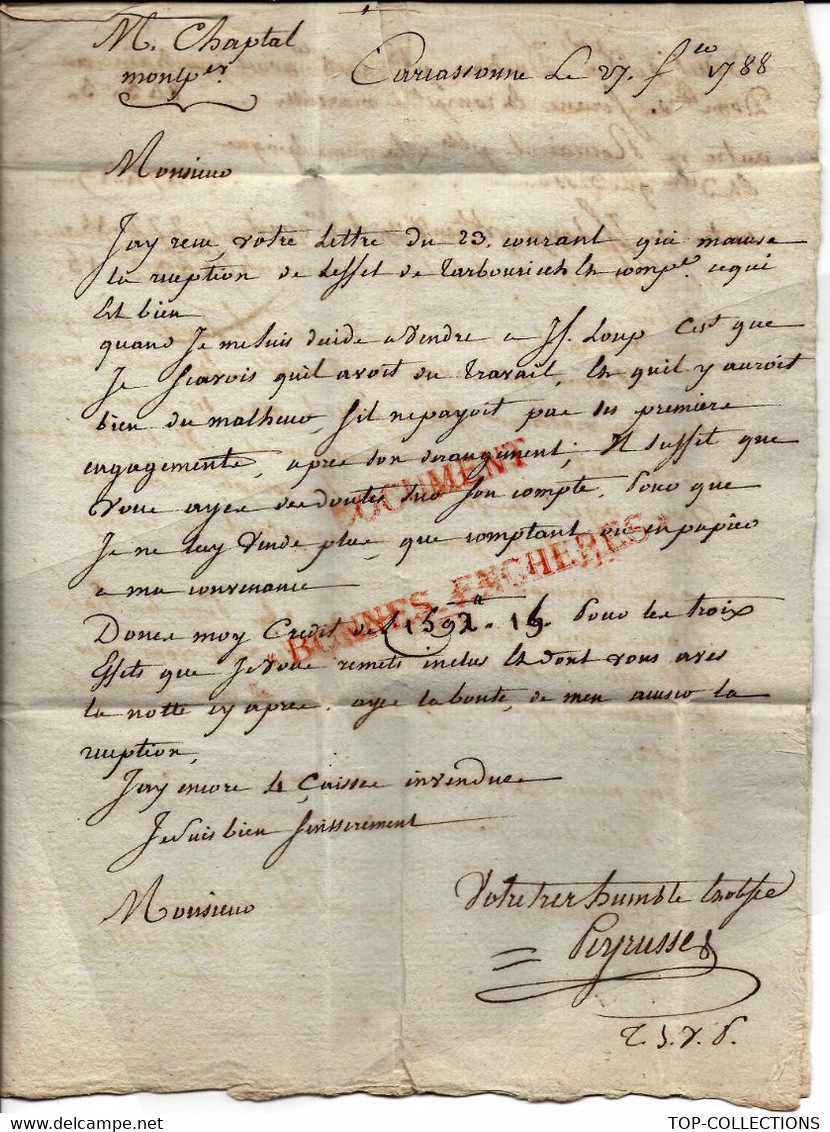 M. Chaptal
montp.er
Carcassonne Le 27. 1788
Monsieur
Jay receu votre Lettre du 23. courant qui maccuse
la reception de Leffet de Tarbouriech En comp.te cequi
Est bien
quand Je me suis decidé a vendre a Jh. Loup C'est que
Je scavois quil avoit du Travail, En quil y auroit
bien du malheur, Sil ne payoit pas ses premiers
engagements, apres son derangement; Il suffit que
Vous ayes des doutes sur son compte, Pour que
Je ne luy Vende plus, que comptant ou en papier
a ma convenance
Donnes moy Credit de 1592.tt 19.s Pour les trois
Effets que Je Vous remets inclus En dont vous aves
la notte cy apres. ayes la bonté, de men accuser la
reception,
Jay encore 4 Caisses invendues
Je suis bien Sinsserement
Monsieur
Votre tres humble
Peyrusse
T. S. V. P.
DOCUMENT
BONNES-ENCHERES
TOP-COLLECTIONS